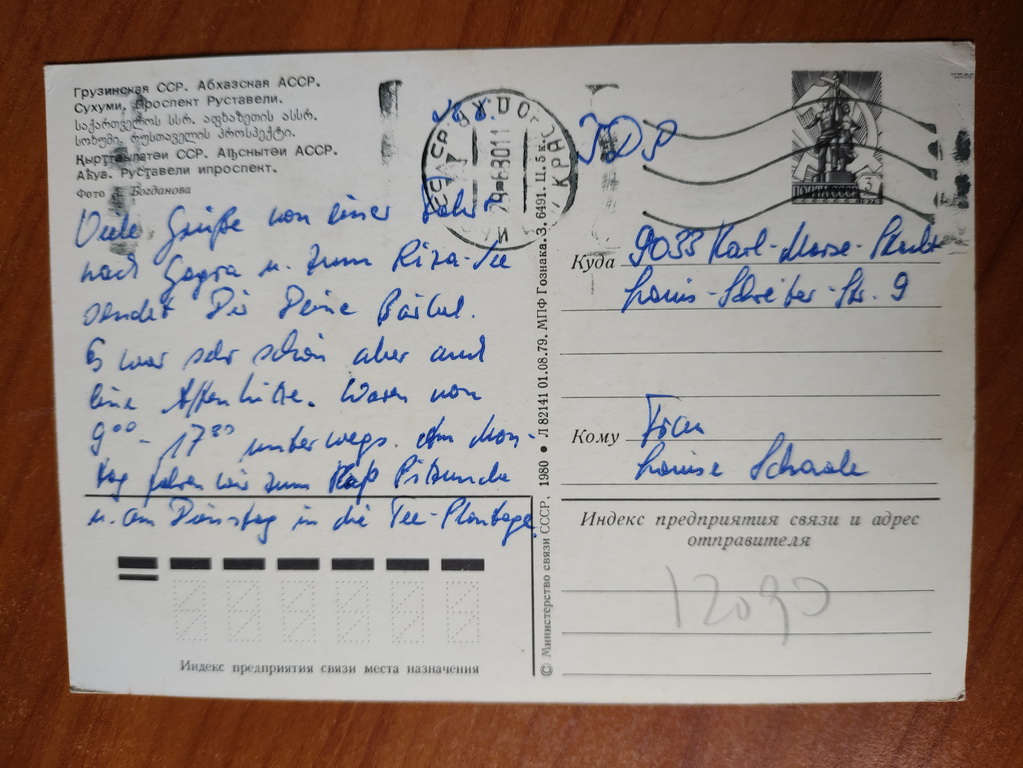 Грузинская ССР. Абхазская АССР.
Сухуми. Проспект Руставели.
საქართველოს სსრ. აფხაზეთის ასსრ.
სოხუმი. რუსთაველის პროსპექტი.
Қырҭтәылатәи ССР. Аҧснытәи АССР.
Аҟәа. Руставели ипроспект.
Фото Богданова
Viele Grüße von einer Fahrt
nach Gagra u. zum Riza-See
sendet Dir Deine Bärbel.
Es war sehr schön aber auch
eine Affenhitze. Waren von
9⁰⁰ - 17³⁰ unterwegs. Am Mon-
tag fahren wir zum Kap Pitzunda
u. am Dienstag in die Tee-Plantage.
Индекс предприятия связи места назначения
© Министерство связи СССР. 1980 • Л 82141 01.08.79. МПФ Гознака. З. 6491. Ц. 5 к.
СУХУМИ
DDR
ПОЧТА СССР
3
1976
Куда 9033 Karl-Marx-Stadt
Louis-Schreiber-Str. 9
Кому Frau
Louise Schaale
Индекс предприятия связи и адрес
отправителя
12090